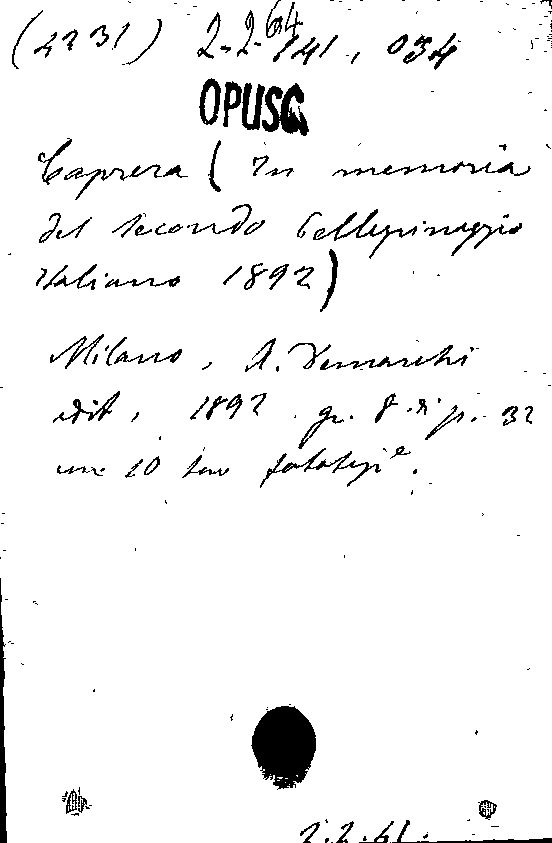 (2231) 2-2-64 141, 034
OPUSC
Caprera (In memoria
del secondo Pellegrinaggio
Italiano 1892)
Milano, A. Demarchi
edit, 1892 gr. 8° di p. 32
con 10 tav fototipie.
2.2.61.